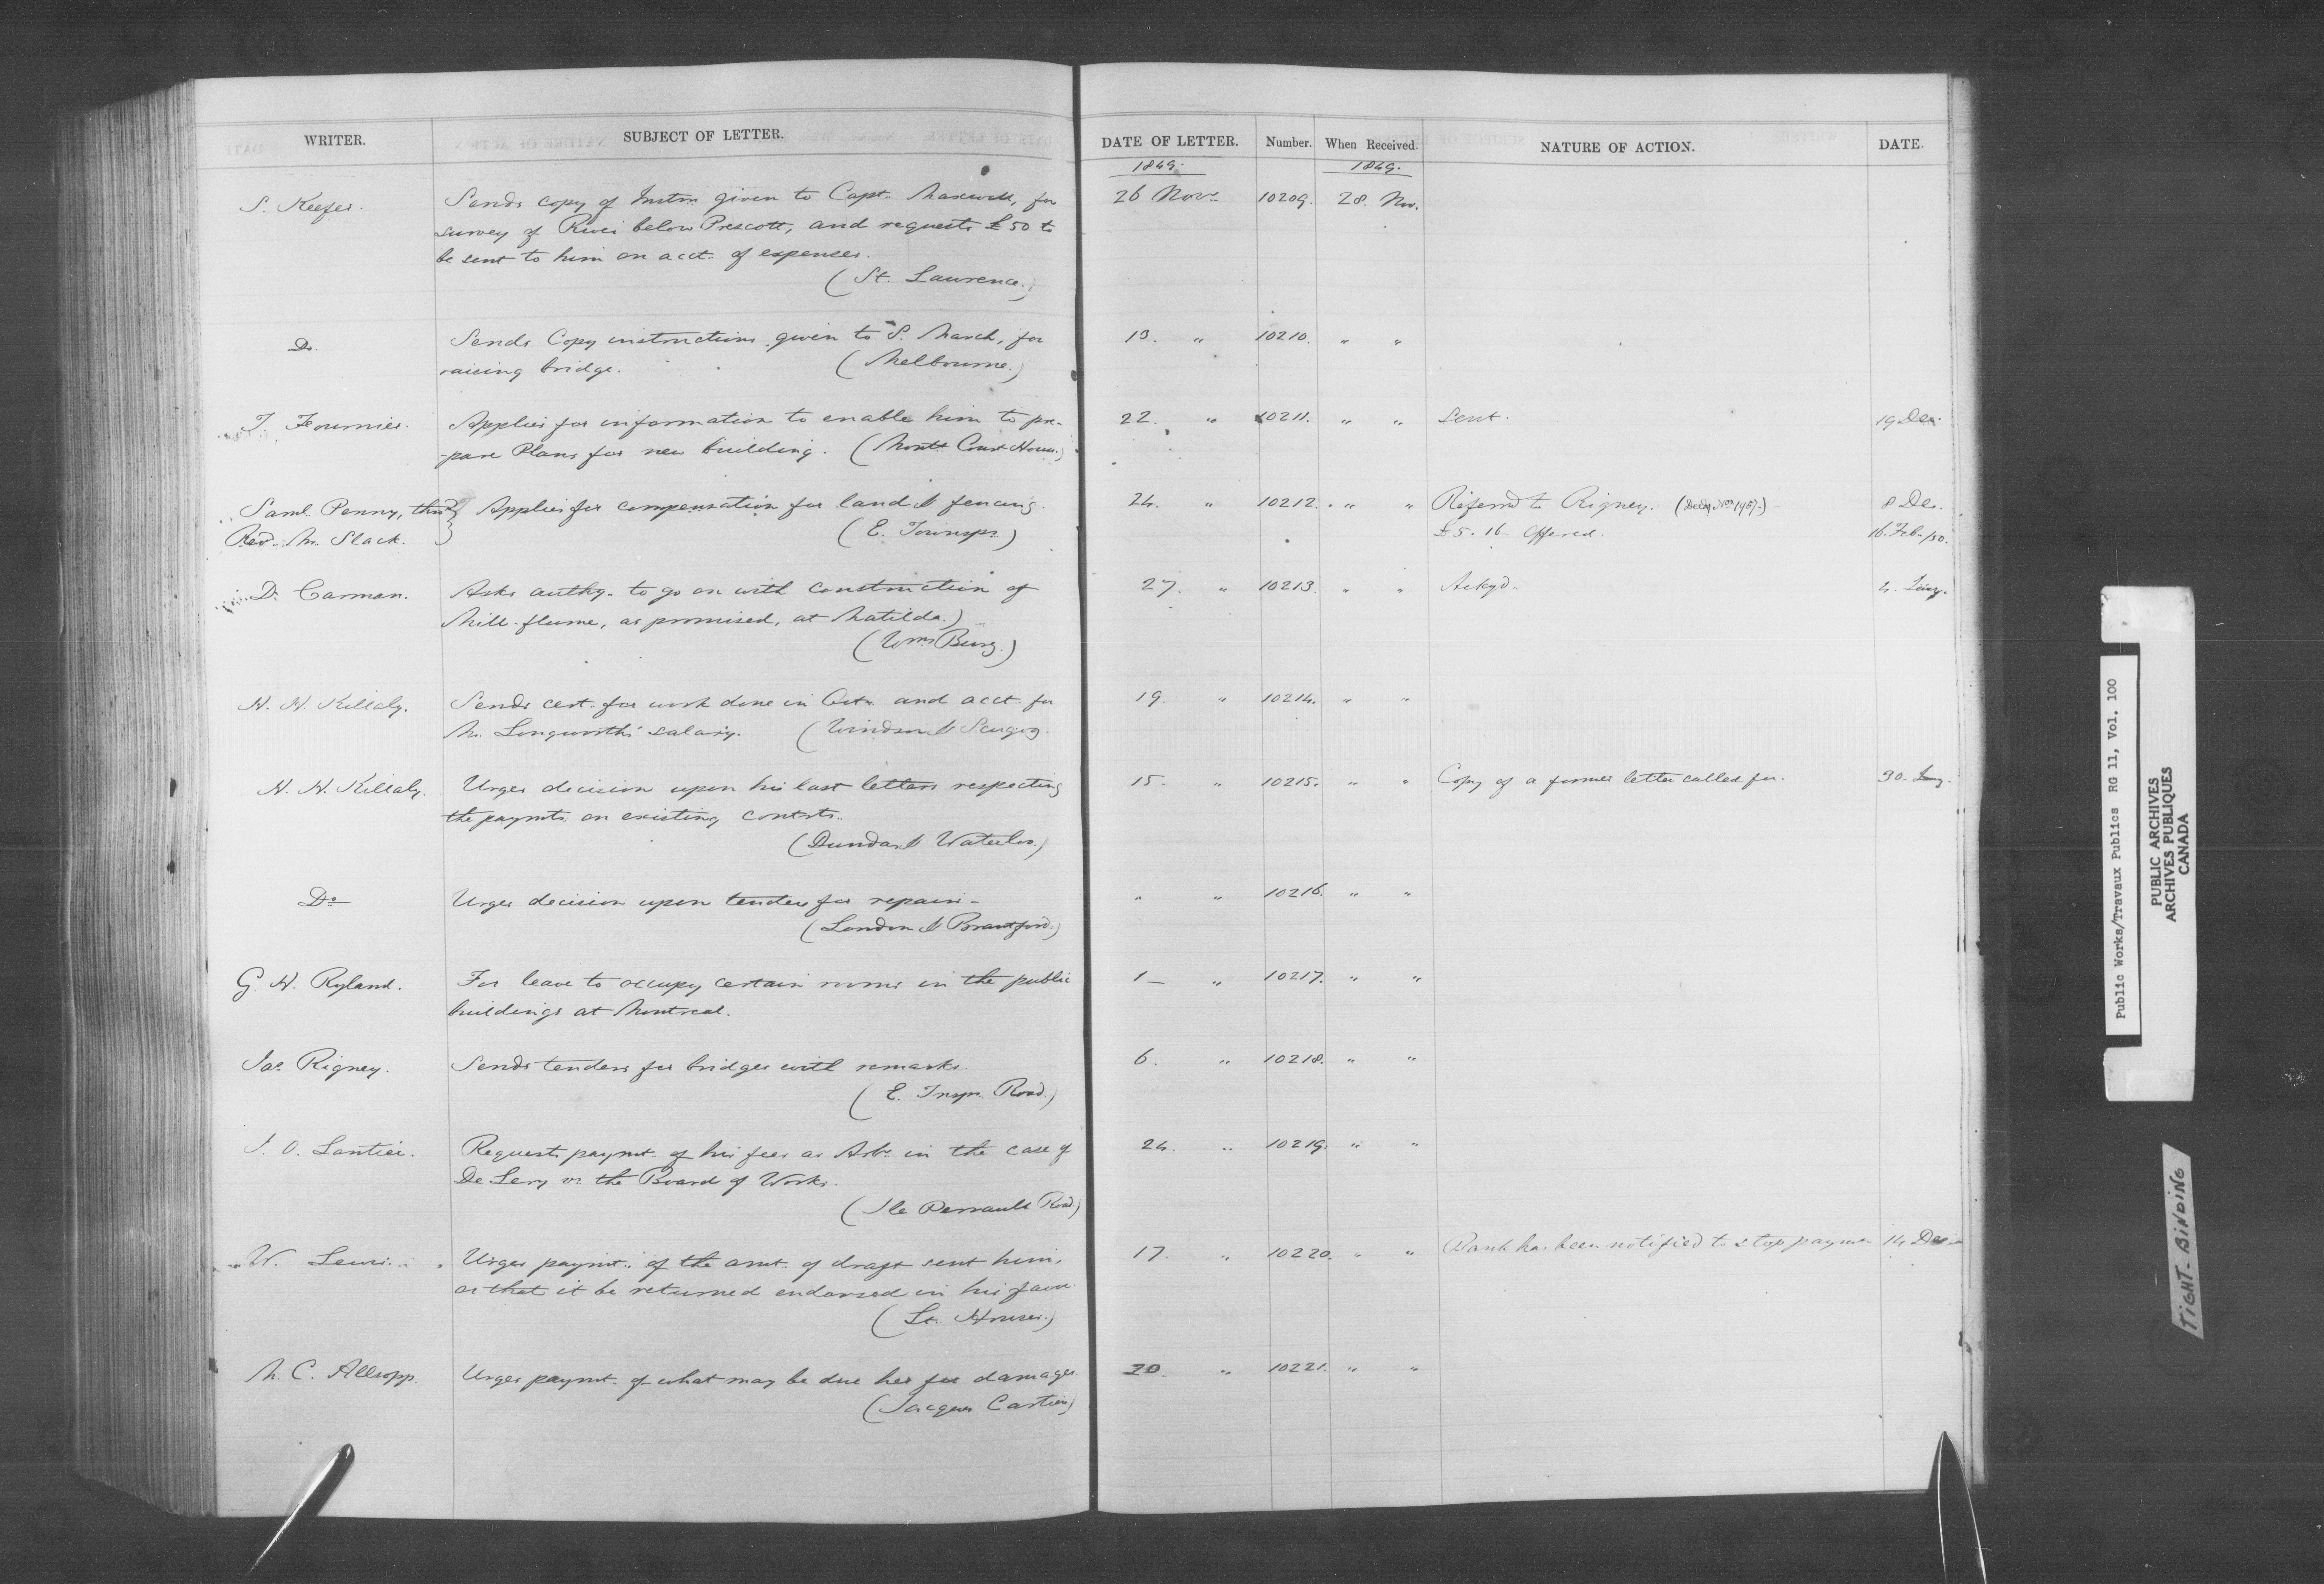 WRITER. SUBJECT OF LETTER. DATE OF LETTER. Number. When Received. NATURE OF ACTION. DATE.
1849. 1849.
S. Keefer. Sends copy of Instrns given to Capt. Maxwell, for 26 Novr. 10209. 28. Nov.
survey of River below Prescott, and requests £50 to
be sent to him on acct. of expenses.
(St. Lawrence.)
Do. Sends Copy instructions given to S. March, for 13. " 10210. " "
raising bridge. (Melbourne.)
T. Fournier. Applies for information to enable him to pre- 22. " 10211. " " Sent. 19 Dec.
-pare Plans for new building. (Montl. Court House.)
Saml. Penny, thro' Applies for compensation for land & fencing. 24. " 10212. " " Referred to Rigney. 8 Dec.
Revd. M. Slack. (E. Townsps.) £5. 16 - Offered. 16. Feb. /50.
D. Carman. Asks authy. to go on with construction of 27. " 10213. " " Ackgd. 4. Jany.
Mill-flume, as promised, at Matilda.)
(Wms. Burg.)
H. H. Killaly. Sends cert. for work done in Octr. and acct. for 19. " 10214. " "
M. Longworth's salary. (Windsor & Scugog.
H. H. Killaly. Urges decision upon his last letters respecting 15. " 10215. " " Copy of a former letter called for. 30. Jany.
the paymts. on existing contrts.
(Dundas & Waterloo.)
Do Urges decision upon tenders for repairs - " " 10216. " "
(London & Brantford.)
G. H. Ryland. For leave to occupy certain rooms in the public 1 - " 10217. " "
buildings at Montreal.
Jas. Rigney. Sends tenders for bridges with remarks. 6. " 10218. " "
(E. Tnsps. Road.)
J. O. Lantier. Requests paymt. of his fees as Arbr. in the case of 24. " 10219. " "
De Lery vs. the Board of Works.
(Ile Perrault Road)
W. Lewis. Urges paymt. of the amt. of draft sent him, 17. " 10220. " " Bank has been notified to stop paymen 14 Dec.
or that it be returned endorsed in his favr.
(Lt. Houses.)
M. C. Allsopp. Urges paymt. of what may be due her for damages. 20. " 10221. " "
(Jacques Cartier)
Public Works/Travaux Publics RG 11, Vol. 100
PUBLIC ARCHIVES
ARCHIVES PUBLIQUES
CANADA
TIGHT-BINDING